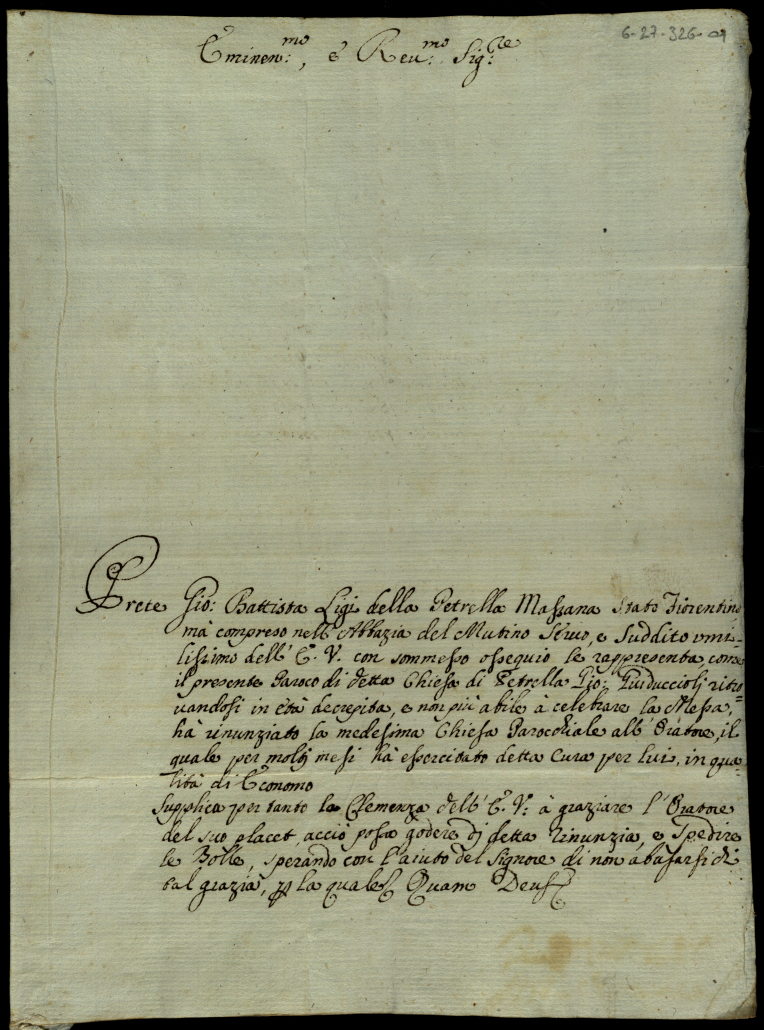 6-27-326-01
Eminen:mo, e Reu:mo Sig:re
Prete Gio: Battista Ligi della Petrella Massana Stato Fiorentino
mà compreso nell'Abbazia del Mutino Seruo, e Suddito vmi-
lissimo dell'E. V. con sommesso ossequio le rappresenta come
il presente Paroco di detta Chiesa di Petrella Gio: Guiduccioli ritro
uandosi in età decrepita, e non più abile a celebrare la Messa,
hà rinunziato la medesima Chiesa Parocchiale all'Oratore, il
quale per molti mesi hà essercitato detta Cura per lui, in qua-
lità di Economo
Supplica per tanto la Clemenza dell'E. V: à graziare l'Oratore
del suo placet, acciò possa godere di detta rinunzia, e Spedire
le Bolle, sperando con l'aiuto del Signore di non abusarsi di
tal grazia, per la quale Quam Deus